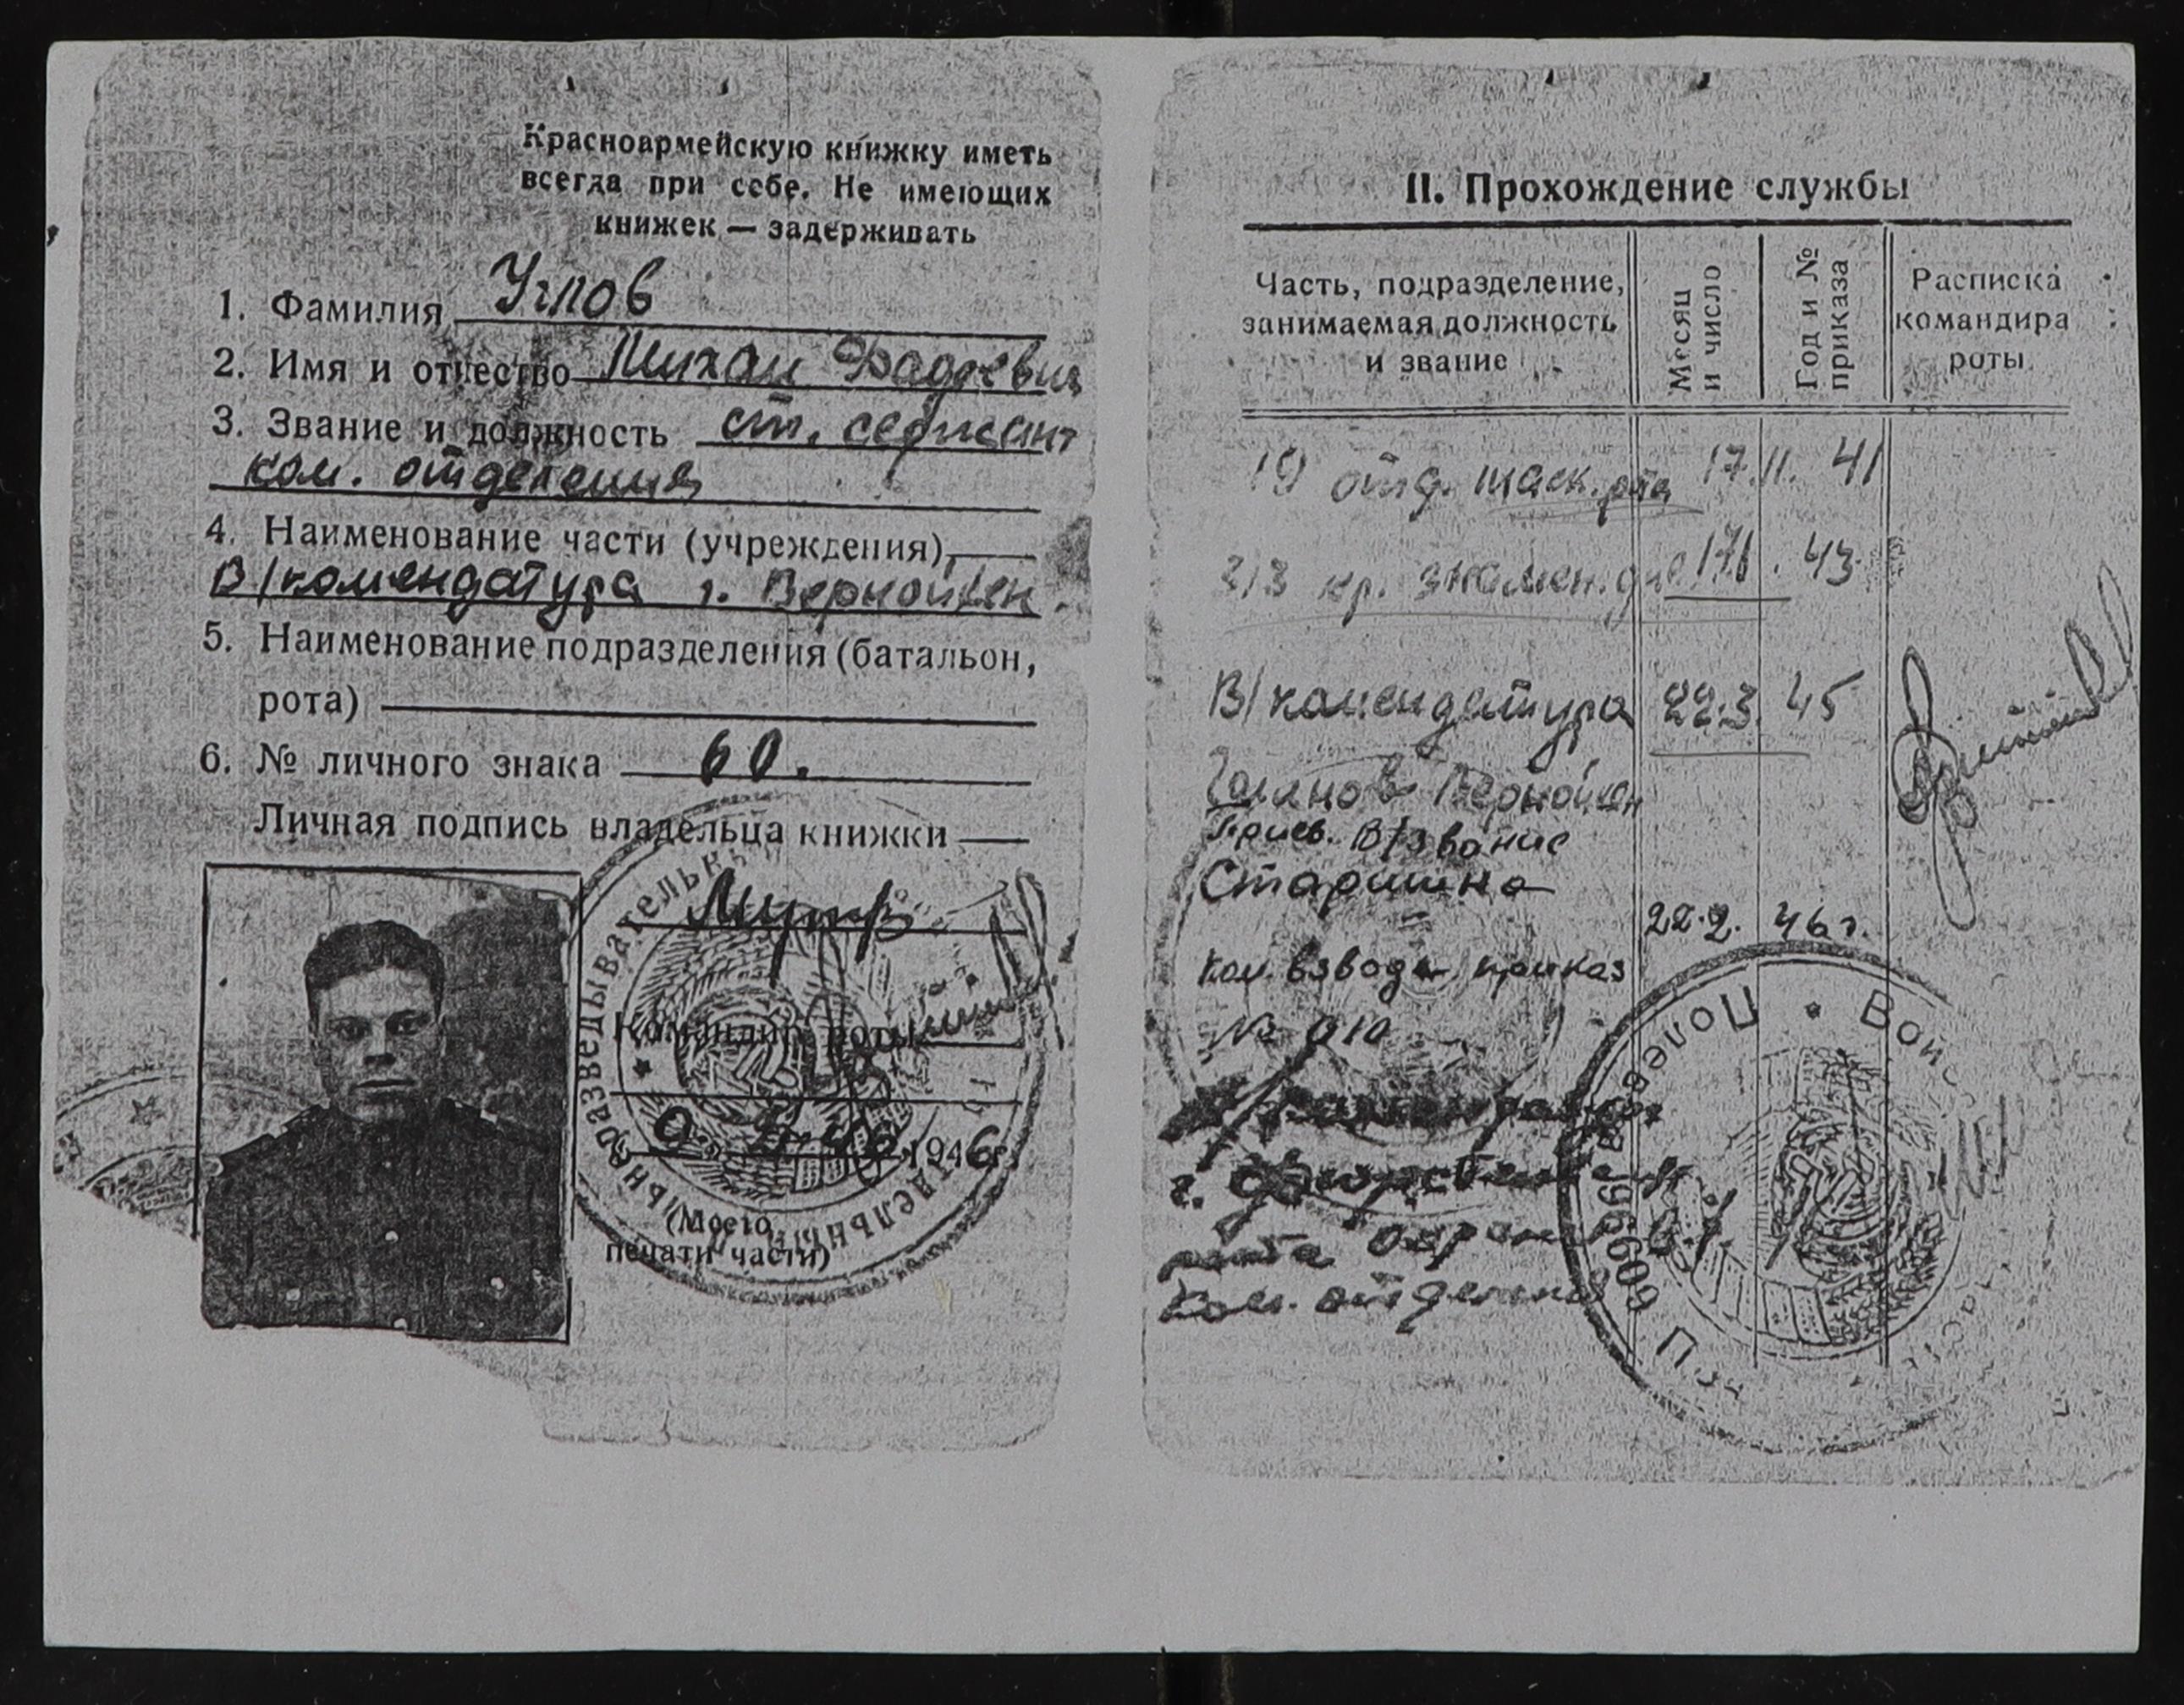 Красноармейскую книжку иметь
всегда при себе. Не имеющих
книжек — задерживать
1. Фамилия Углов
2. Имя и отчество Михаил Фадеевич
3. Звание и должность ст. сержант
ком. отделения
4. Наименование части (учреждения),
В/комендатура г. Вернойхен.
5. Наименование подразделения (батальон,
рота)
6. № личного знака 60.
Личная подпись владельца книжки
Командир роты
1946г.
(Место
печати части)
II. Прохождение службы
Часть, подразделение,
занимаемая должность
и звание
Месяц
и число
Год и №
приказа
Расписка
командира
роты
19 отд. рота 17.11. 41
213 кр. знамен. 43
В/комендатура 22.3 45
Вернойхен
Присв. В/звание
Старшина
22.2. 46г.
Ком. взвода приказ
№ 010
г.
рота
Ком. отделения
Полевая